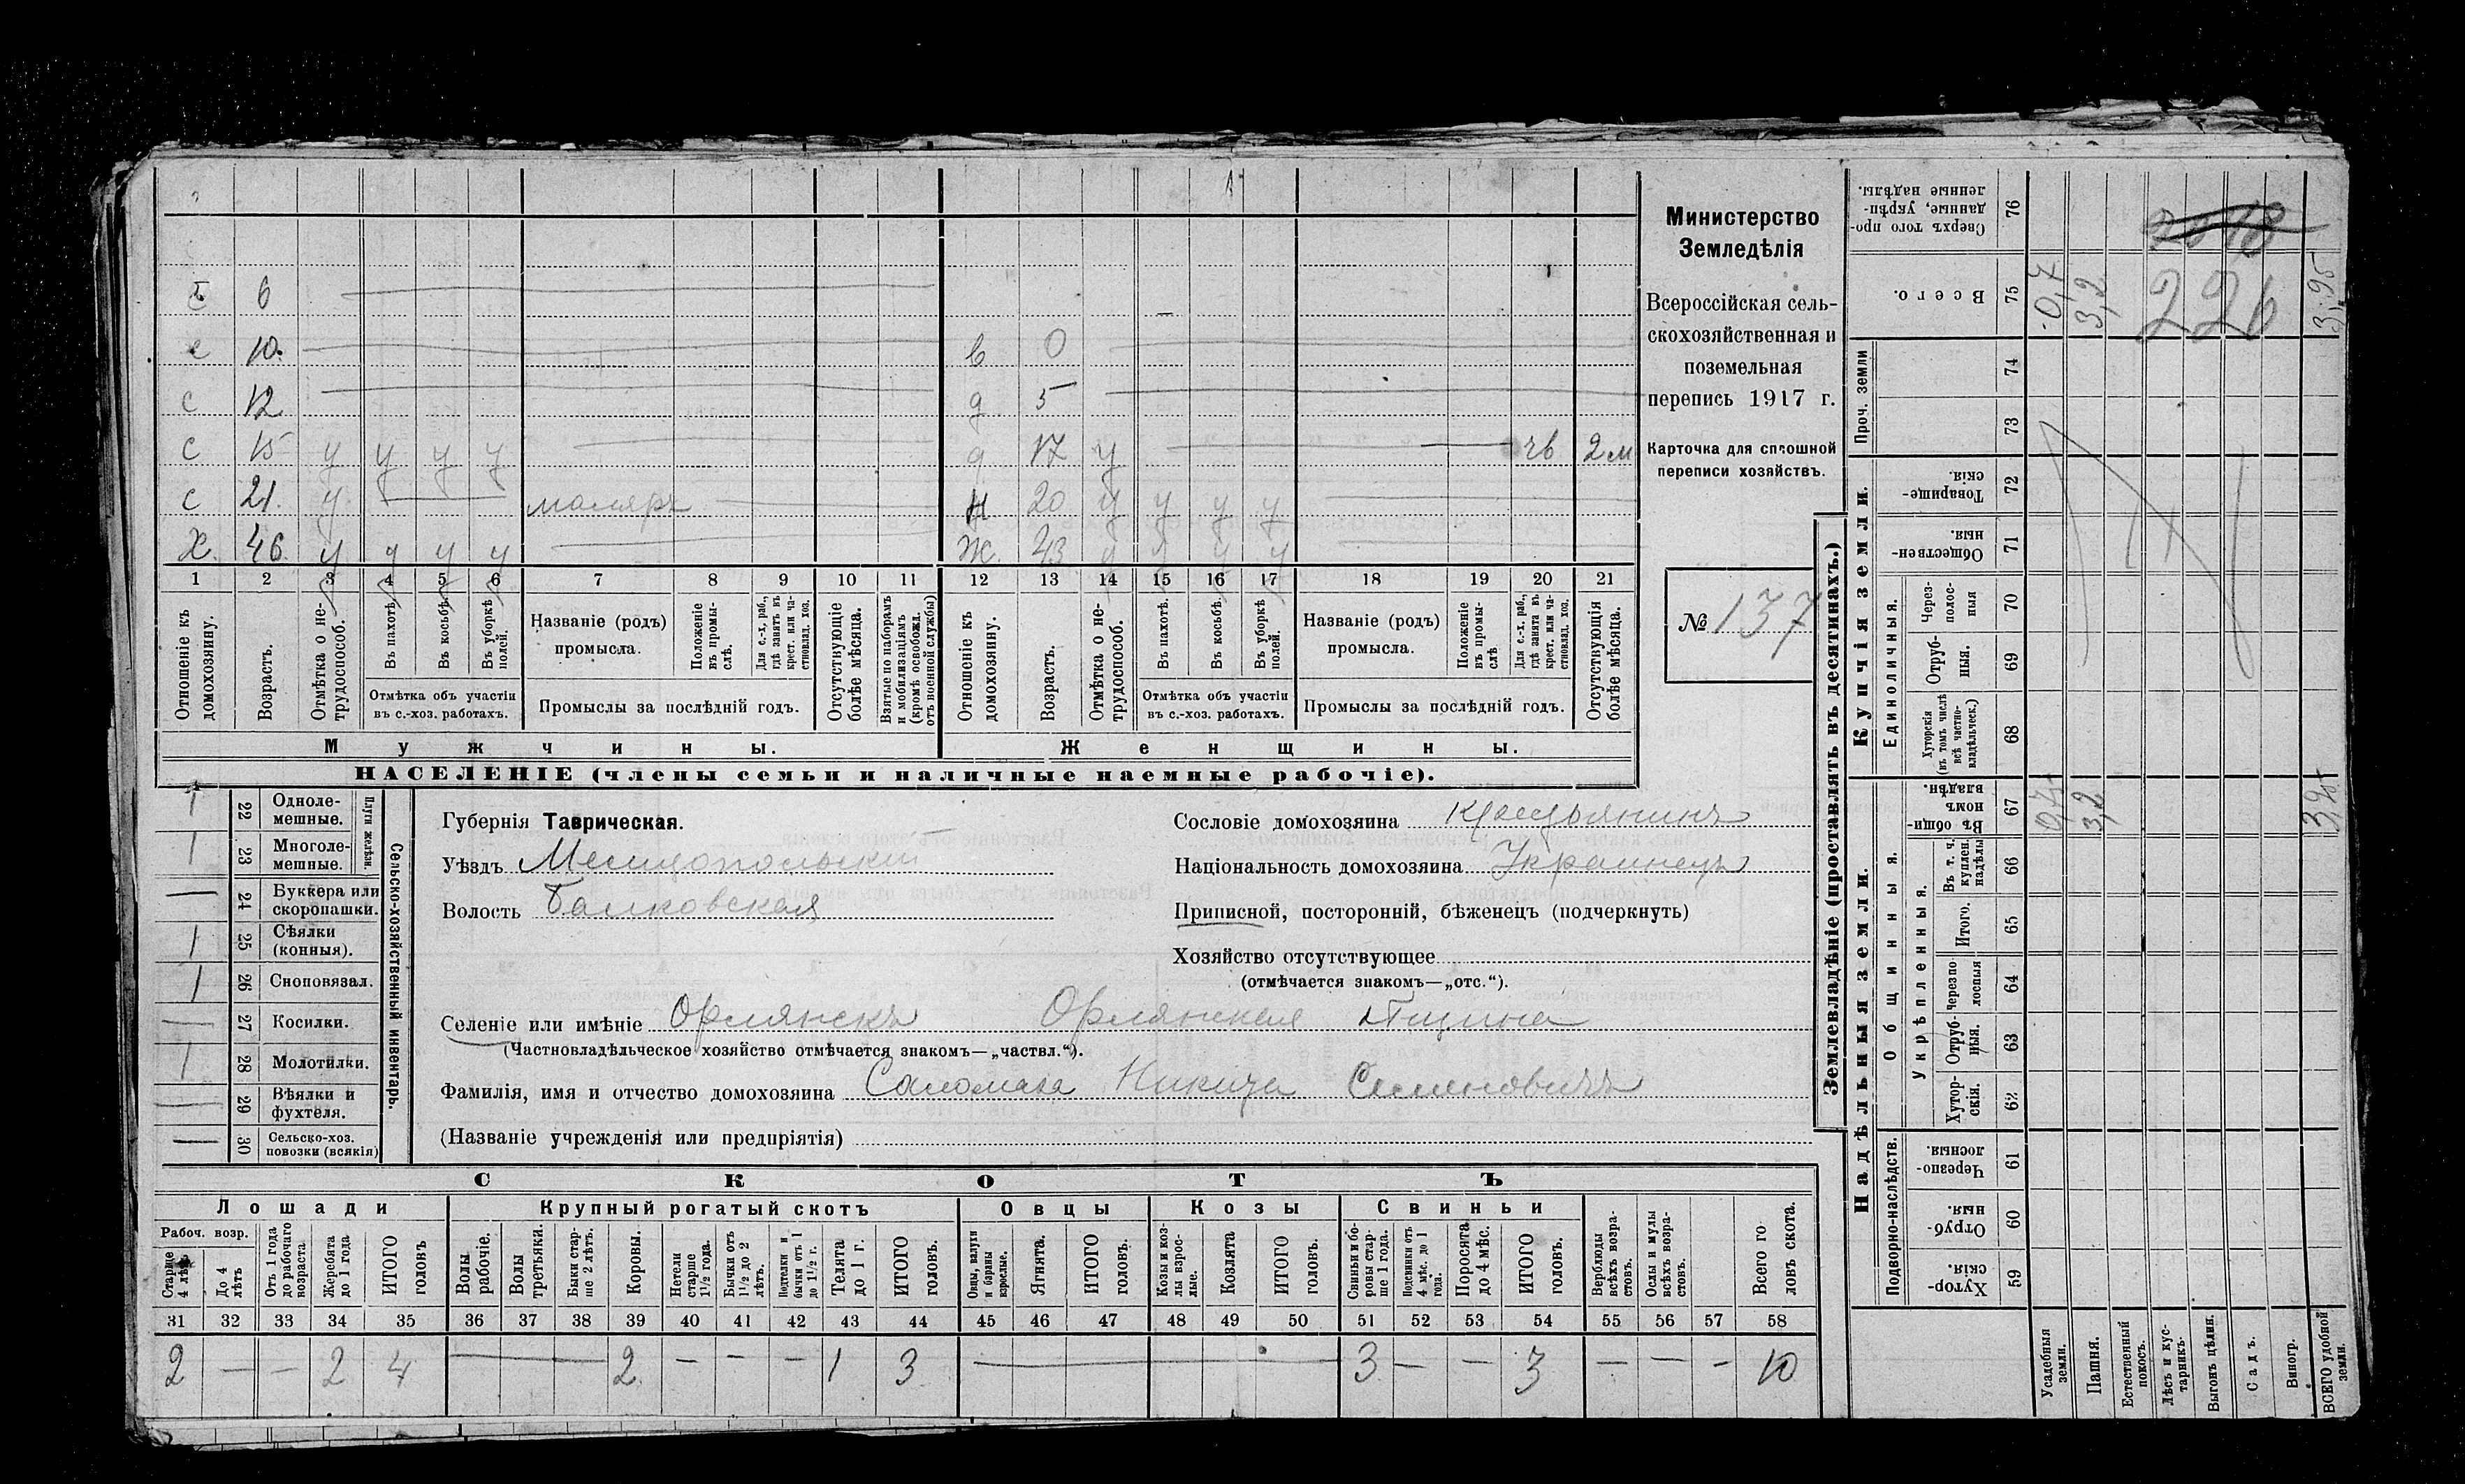 Министерство
Земледѣлія
Всероссійская сель-
скохозяйственная и
поземельная
перепись 1917 г.
Карточка для сплошной
переписи хозяйствъ.
№ 137
б 6
с 10. в 0
с 12 д 5
с 15 у у у у д 17 у чв 2 м
с 21. у маляръ н 20 у у у у
Х. 46. у у у у Ж. 43 у у у у
1 2 3 4 5 6 7 8 9 10 11 12 13 14 15 16 17 18 19 20 21
Отношеніе къ домохозяину.
Возрастъ.
Отмѣтка о не-трудоспособ.
Въ пахотѣ.
Въ косьбѣ.
Въ уборкѣ полей.
Отмѣтка объ участіи
въ с.-хоз. работахъ.
Названіе (родъ)
промысла.
Положеніе въ промы-слѣ.
Для с.-х. раб., гдѣ занятъ въ крест. или ча-стновлад. хоз.
Промыслы за послѣдній годъ.
Отсутствующіе болѣе мѣсяца.
Взятые по наборамъ и мобилизаціямъ (кромѣ освобожд. отъ военной службы)
Отношеніе къ домохозяину.
Возрастъ.
Отмѣтка о не-трудоспособ.
Въ пахотѣ.
Въ косьбѣ.
Въ уборкѣ полей.
Отмѣтка объ участіи
въ с.-хоз. работахъ.
Названіе (родъ)
промысла.
Положеніе въ промы-слѣ
Для с.-х. раб., гдѣ занята въ крест. или ча-стновлад. хоз.
Промыслы за послѣдній годъ.
Отсутствующія болѣе мѣсяца.
Мужчины. Женщины.
НАСЕЛЕНІЕ (члены семьи и наличные наемные рабочіе).
Сельско-хозяйственный инвентарь.
Плуги желѣзн.
1 22 Однолемешные.
1 23 Многолемешные.
— 24 Буккера или скоропашки.
1 25 Сѣялки (конныя).
1 26 Сноповязал.
— 27 Косилки.
1 28 Молотилки.
— 29 Вѣялки и фухтеля.
— 30 Сельско-хоз. повозки (всякія)
Губернія Таврическая.
Уѣздъ Мелитопольскій
Волость Балковская
Сословіе домохозяина крестьянинъ
Національность домохозяина Украинецъ
Приписной, посторонній, бѣженецъ (подчеркнуть)
Хозяйство отсутствующее
(отмѣчается знакомъ—„отс.“).
Селеніе или имѣніе Орлянскъ Орлянская
(Частновладѣльческое хозяйство отмѣчается знакомъ—„частвл.“).
Фамилія, имя и отчество домохозяина Саломаха Никита Семеновичъ
(Названіе учрежденія или предпріятія)
СКОТЪ
Лошади Крупный рогатый скотъ Овцы Козы Свиньи
Рабоч. возр.
Старше 4 лѣтъ
До 4 лѣтъ
Отъ 1 года до рабочаго возраста
Жеребята до 1 года
ИТОГО головъ
Волы рабочіе.
Волы третьяка.
Быки стар-ше 2 лѣтъ.
Коровы.
Нетели старше 1½ года.
Бычки отъ 1½ до 2 лѣтъ.
Подтелки и бычки отъ 1 до 1½ г.
Телята до 1 г.
ИТОГО головъ.
Овцы, валухи и бараны взрослые.
Ягнята.
ИТОГО головъ.
Козы и коз-лы взрос-лые.
Козлята
ИТОГО головъ.
Свиньи и бо-ровы стар-ше 1 года.
Подсвинки отъ 4 мѣс. до 1 года.
Поросята до 4 мѣс.
ИТОГО головъ.
Верблюды всѣхъ возра-стовъ.
Ослы и мулы всѣхъ возра-стовъ.
Всего го ловъ скота.
31 32 33 34 35 36 37 38 39 40 41 42 43 44 45 46 47 48 49 50 51 52 53 54 55 56 57 58
2 — — 2 4 — 2 — — — 1 3 — 3 — — 3 — — — 10
Землевладѣніе (проставлять въ десятинахъ.)
Надѣльныя земли. Купчія земли.
Подворно-наслѣдств.
Общинныя.
Укрѣпленныя.
Единоличныя.
Проч. земли
59 Хутор-скія.
60 Отруб-ныя.
61 Черезпо-лосныя
62 Хутор-скія.
63 Отруб-ныя.
64 Черезпо-лосныя
65 Итого.
66 Въ т. ч. куплен. надѣлы
67 Въ общи-номъ владѣн.
68 Хуторскія (въ томъ числѣ всѣ частно-владѣльческ.)
69 Отруб-ныя.
70 Через-полос-ныя
71 Обществен-ныя.
72 Товарище-скія.
73
74
75 Всего.
76 Сверхъ того про-данные, укрѣп-ленные надѣлы.
Усадебныя земли.
Пашня.
Естественный покосъ.
Лѣсъ и кус-тарникъ.
Выгонъ цѣлин.
Садъ.
Виногр.
ВСЕГО удобной земли.
0,7 3,2 3,95
226